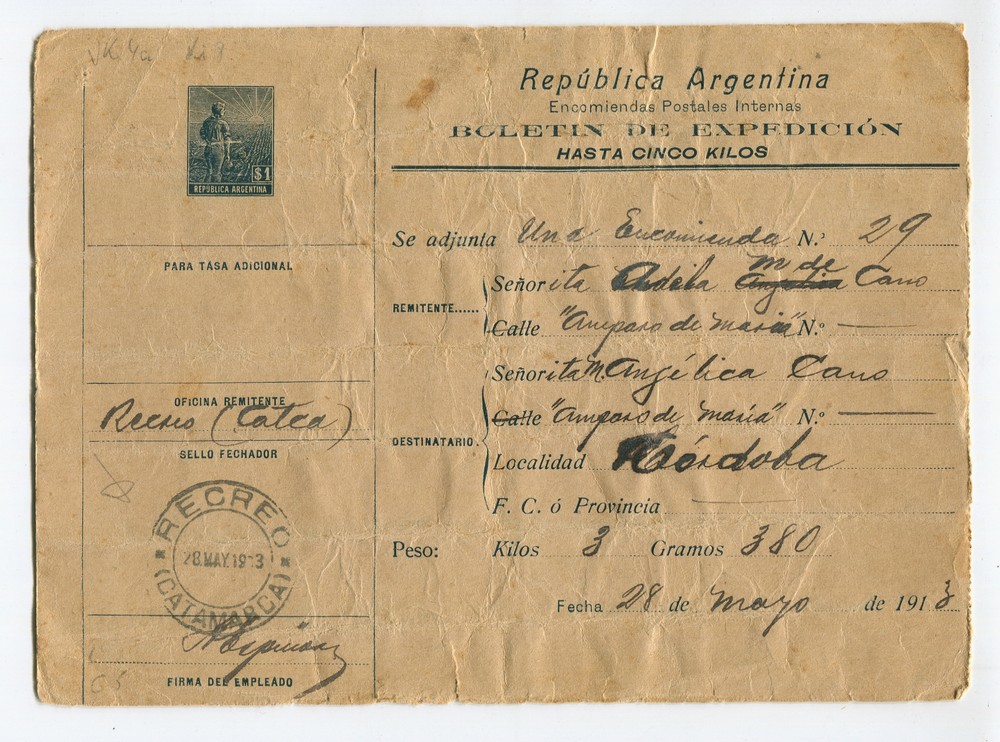 $1
REPÚBLICA ARGENTINA
PARA TASA ADICIONAL
OFICINA REMITENTE
Recreo (Catca)
SELLO FECHADOR
RECREO
28.MAY.19 3
(CATAMARCA)
FIRMA DEL EMPLEADO
República Argentina
Encomiendas Postales Internas
BOLETIN DE EXPEDICIÓN
HASTA CINCO KILOS
Se adjunta Una Encomienda N.º 29
Señorita M de Cano
REMITENTE......
Calle "Amparo de Maria" N.º
Señorita M. Angélica Cano
Calle "Amparo de Maria" N.º
DESTINATARIO.
Localidad Córdoba
F. C. ó Provincia
Peso: Kilos 3 Gramos 380
Fecha 28 de Mayo de 1913